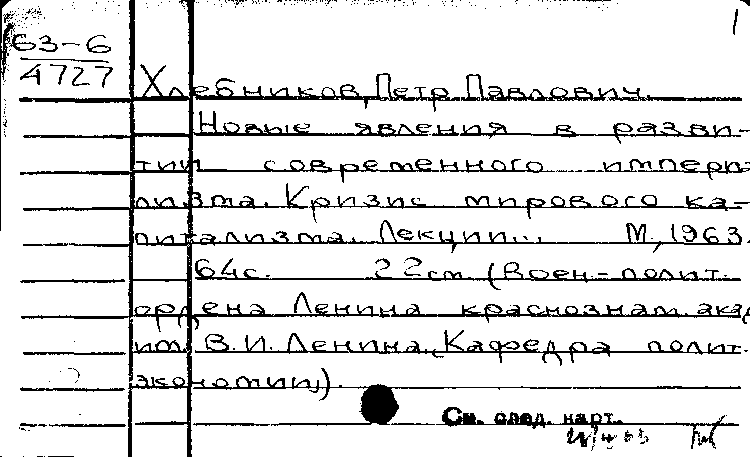 1
63-6
4727
Хлебников, Петр Павлович.
Новые явления в разви-
тии современного импери-
лизма. Кризис мирового ка-
питализма. Лекции... М., 1963.
64с. 22см. (Воен-полит.
ордена Ленина краснознам. акад
им. В.И. Ленина. Кафедра полит.
экономии).
См. след. карт.